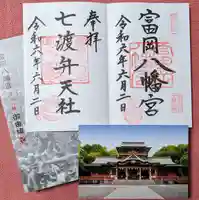 富岡八幡宮
令和六年六月二日
奉拝
七渡弁天社
令和六年六月二日